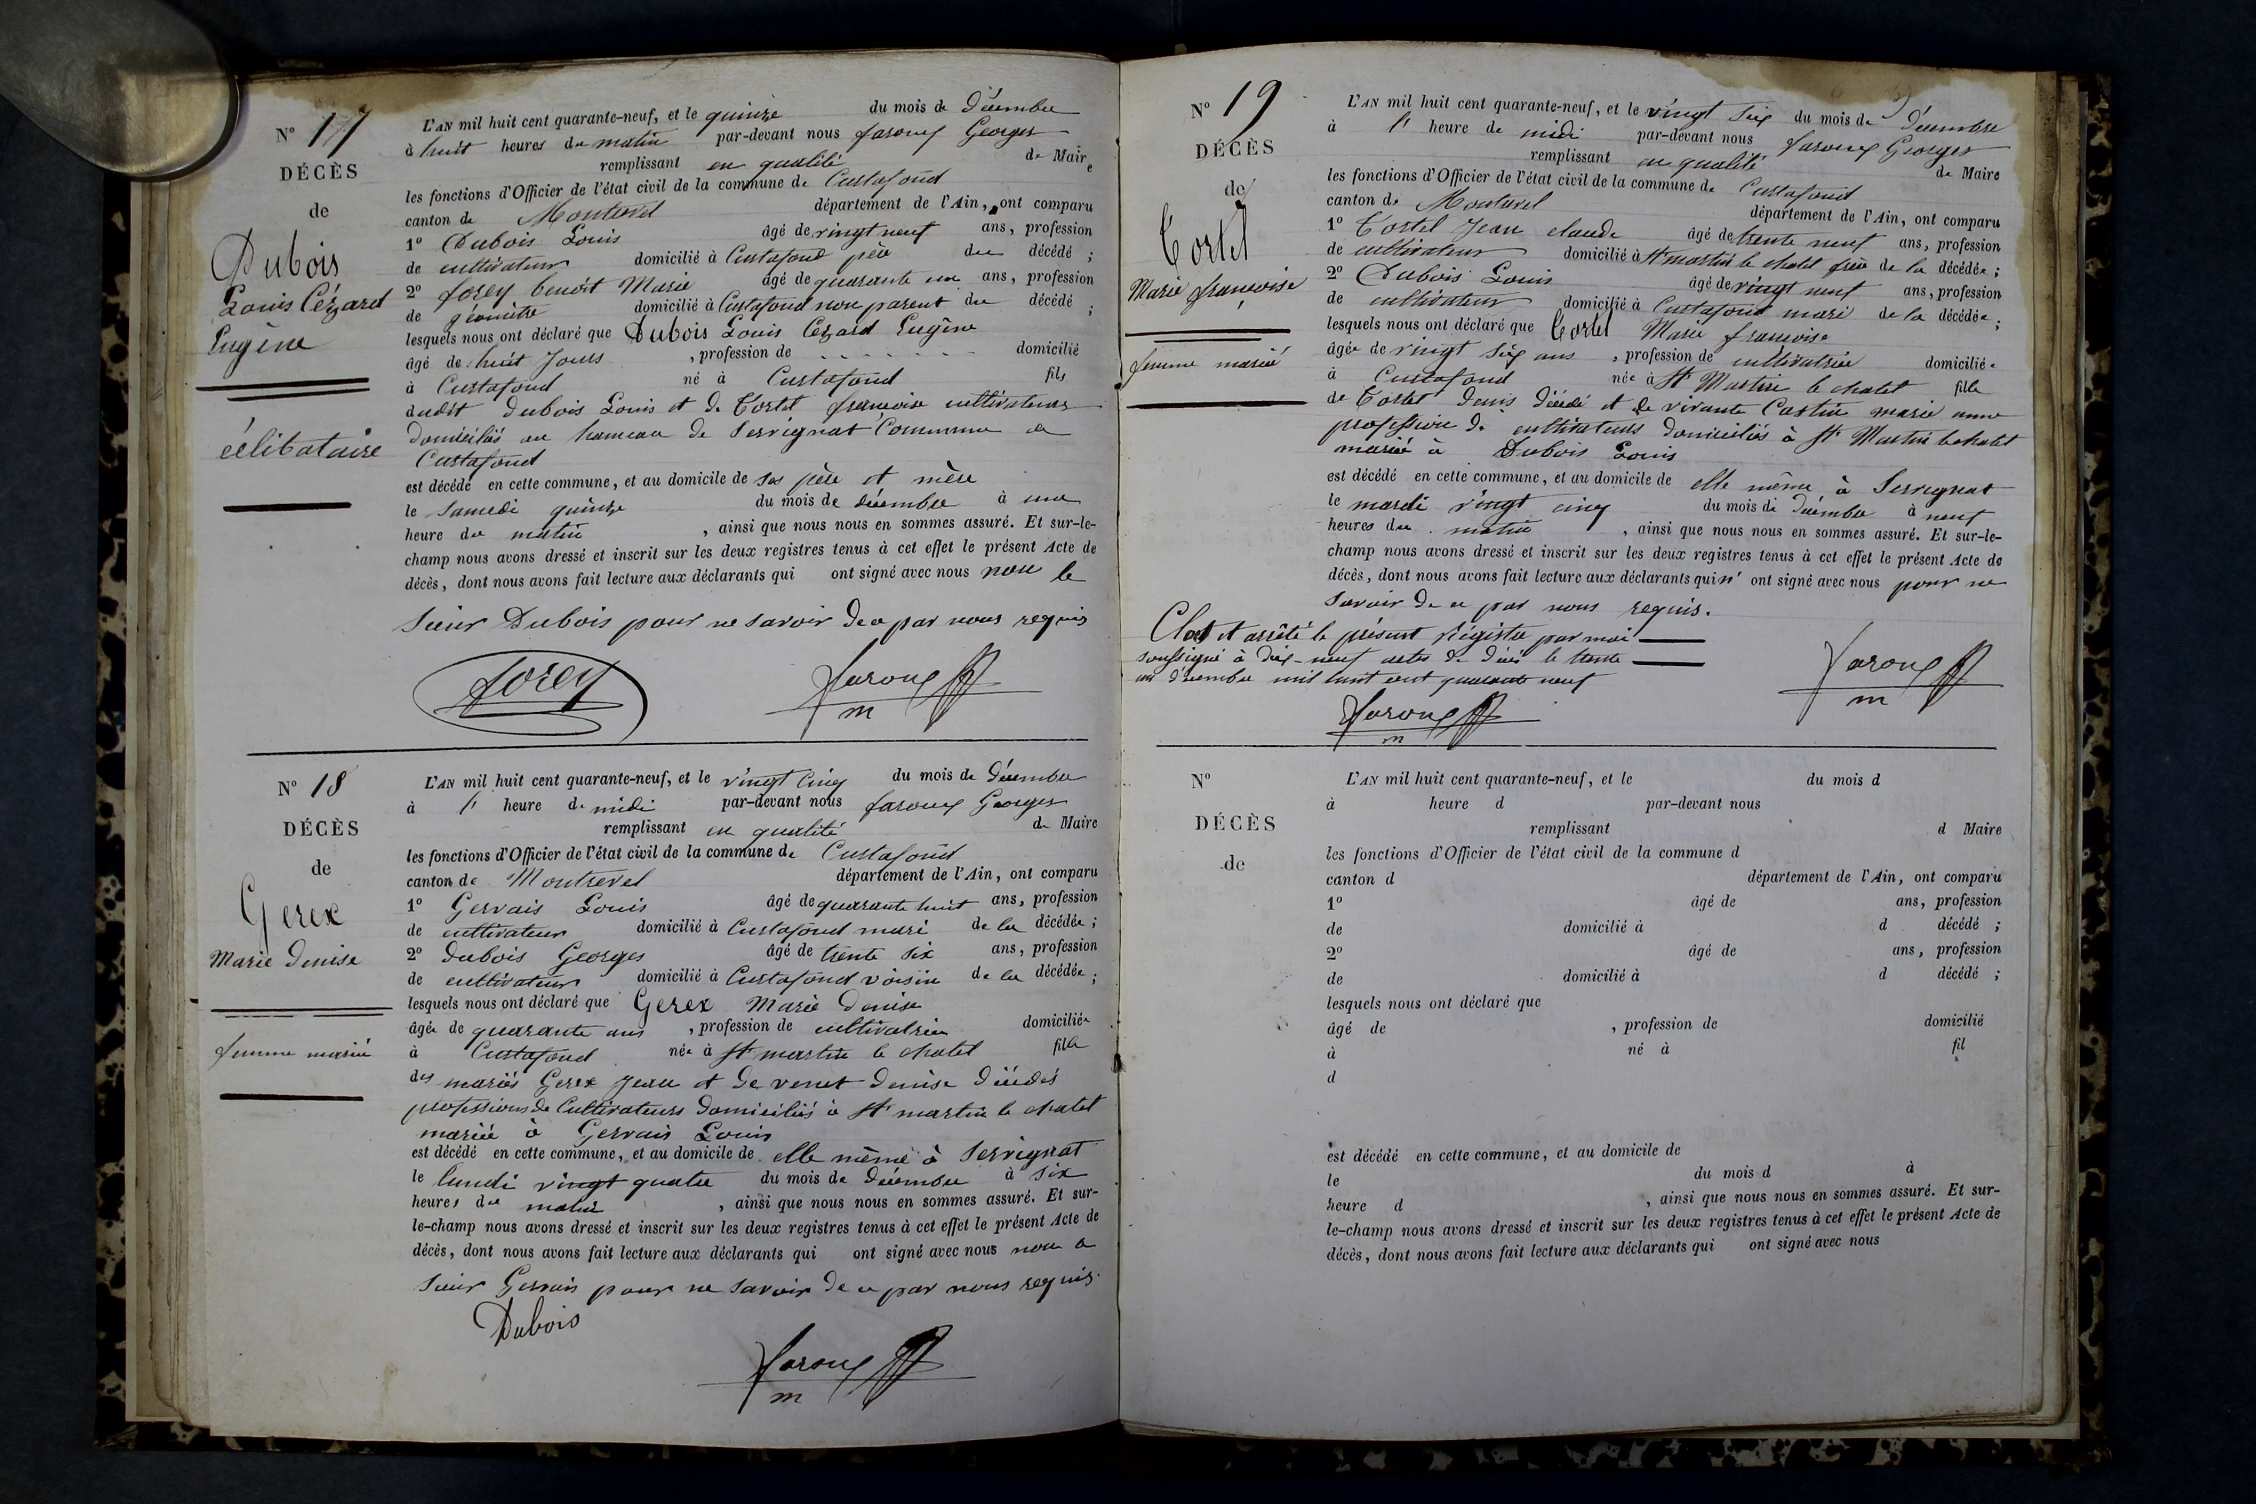 N° 17
DÉCÈS
de
Dubois
Louis Cézard
Eugène
célibataire
L'AN mil huit cent quarante-neuf, et le quinze du mois de décembre
à huit heures du matin par-devant nous faroux Georges
remplissant en qualité de Maire
les fonctions d'Officier de l'état civil de la commune de Curtafond
canton de Montrevel département de l'Ain, ont comparu
1° Dubois Louis âgé de vingt neuf ans, profession
de cultivateur domicilié à Curtafond père du décédé ;
2° forey benoit Marie âgé de quarante un ans, profession
de géomètre domicilié à Curtafond non parent du décédé ;
lesquels nous ont déclaré que Dubois Louis Cézard Eugène
âgé de huit Jours , profession de . . . . . . . domicilié
à Curtafond né à Curtafond fils
dudit dubois Louis et de Cortel francoise cultivateurs
domiciliés au hameau de Serrignat Commune de
Curtafond
est décédé en cette commune, et au domicile de ses père et mère
le samedi quinze du mois de décembre à une
heure du matin , ainsi que nous nous en sommes assuré. Et sur-le-
champ nous avons dressé et inscrit sur les deux registres tenus à cet effet le présent Acte de
décès, dont nous avons fait lecture aux déclarants qui ont signé avec nous non le
sieur Dubois pour ne savoir de ce par nous requis
forey faroux
m
N° 18
DÉCÈS
de
Gerex
Marie Denise
femme mariée
L'AN mil huit cent quarante-neuf, et le vingt cinq du mois de décembre
à l' heure de midi par-devant nous faroux Georges
remplissant en qualité de Maire
les fonctions d'Officier de l'état civil de la commune de Curtafond
canton de Montrevel département de l'Ain, ont comparu
1° Gervais Louis âgé de quarante huit ans, profession
de cultivateur domicilié à Curtafond mari de la décédée ;
2° dubois Georges âgé de trente six ans, profession
de cultivateur domicilié à Curtafond voisin de la décédée ;
lesquels nous ont déclaré que Gerex Marie Denise
âgée de quarante ans , profession de cultivatrice domiciliée
à Curtafond née à St martin le chatel fille
des mariés Gerex Jean et de venet Denise décédés
professions de Cultivateurs domiciliés à St martin le chatel
mariée à Gervais Louis
est décédé en cette commune, et au domicile de elle même à Serrignat
le lundi vingt quatre du mois de décembre à six
heures du matin , ainsi que nous nous en sommes assuré. Et sur-
le-champ nous avons dressé et inscrit sur les deux registres tenus à cet effet le présent Acte de
décès, dont nous avons fait lecture aux déclarants qui ont signé avec nous non le
sieur Gervais pour ne savoir de ce par nous requis.
Dubois
faroux
m
N° 19
DÉCÈS
de
Cortel
Marie francoise
femme mariée
L'AN mil huit cent quarante-neuf, et le vingt six du mois de décembre
à l' heure de midi par-devant nous faroux Georges
remplissant en qualité de Maire
les fonctions d'Officier de l'état civil de la commune de Curtafond
canton de Montrevel département de l'Ain, ont comparu
1° Cortel Jean claude âgé de trente neuf ans, profession
de cultivateur domicilié à St martin le chatel frère de la décédée ;
2° Dubois Louis âgé de vingt neuf ans, profession
de cultivateur domicilié à Curtafond mari de la décédée ;
lesquels nous ont déclaré que Cortel Marie francoise
âgée de vingt six ans , profession de cultivatrice domiciliée
à Curtafond née à St Martin le chatel fille
de Cortel Denis décédé et de vivante Castin marie anne
profession de cultivateurs domiciliés à St Martin le chatel
mariée à Dubois Louis
est décédé en cette commune, et au domicile de elle même à Serrignat
le mardi vingt cinq du mois de décembre à neuf
heures du matin , ainsi que nous nous en sommes assuré. Et sur-le-
champ nous avons dressé et inscrit sur les deux registres tenus à cet effet le présent Acte de
décès, dont nous avons fait lecture aux déclarants qui n' ont signé avec nous pour ne
savoir de ce par nous requis.
Clos et arrêté le présent Régistre par moi
soussigné à dix-neuf actes de décès le trente
un décembre mil huit cent quarante neuf
faroux
m
faroux
m
N°
DÉCÈS
de
L'AN mil huit cent quarante-neuf, et le du mois d
à heure d par-devant nous
remplissant d Maire
les fonctions d'Officier de l'état civil de la commune d
canton d département de l'Ain, ont comparu
1° âgé de ans, profession
de domicilié à d décédé ;
2° âgé de ans, profession
de domicilié à d décédé ;
lesquels nous ont déclaré que
âgé de , profession de domicilié
à né à fil
d
est décédé en cette commune, et au domicile de
le du mois d à
heure d , ainsi que nous nous en sommes assuré. Et sur-
le-champ nous avons dressé et inscrit sur les deux registres tenus à cet effet le présent Acte de
décès, dont nous avons fait lecture aux déclarants qui ont signé avec nous